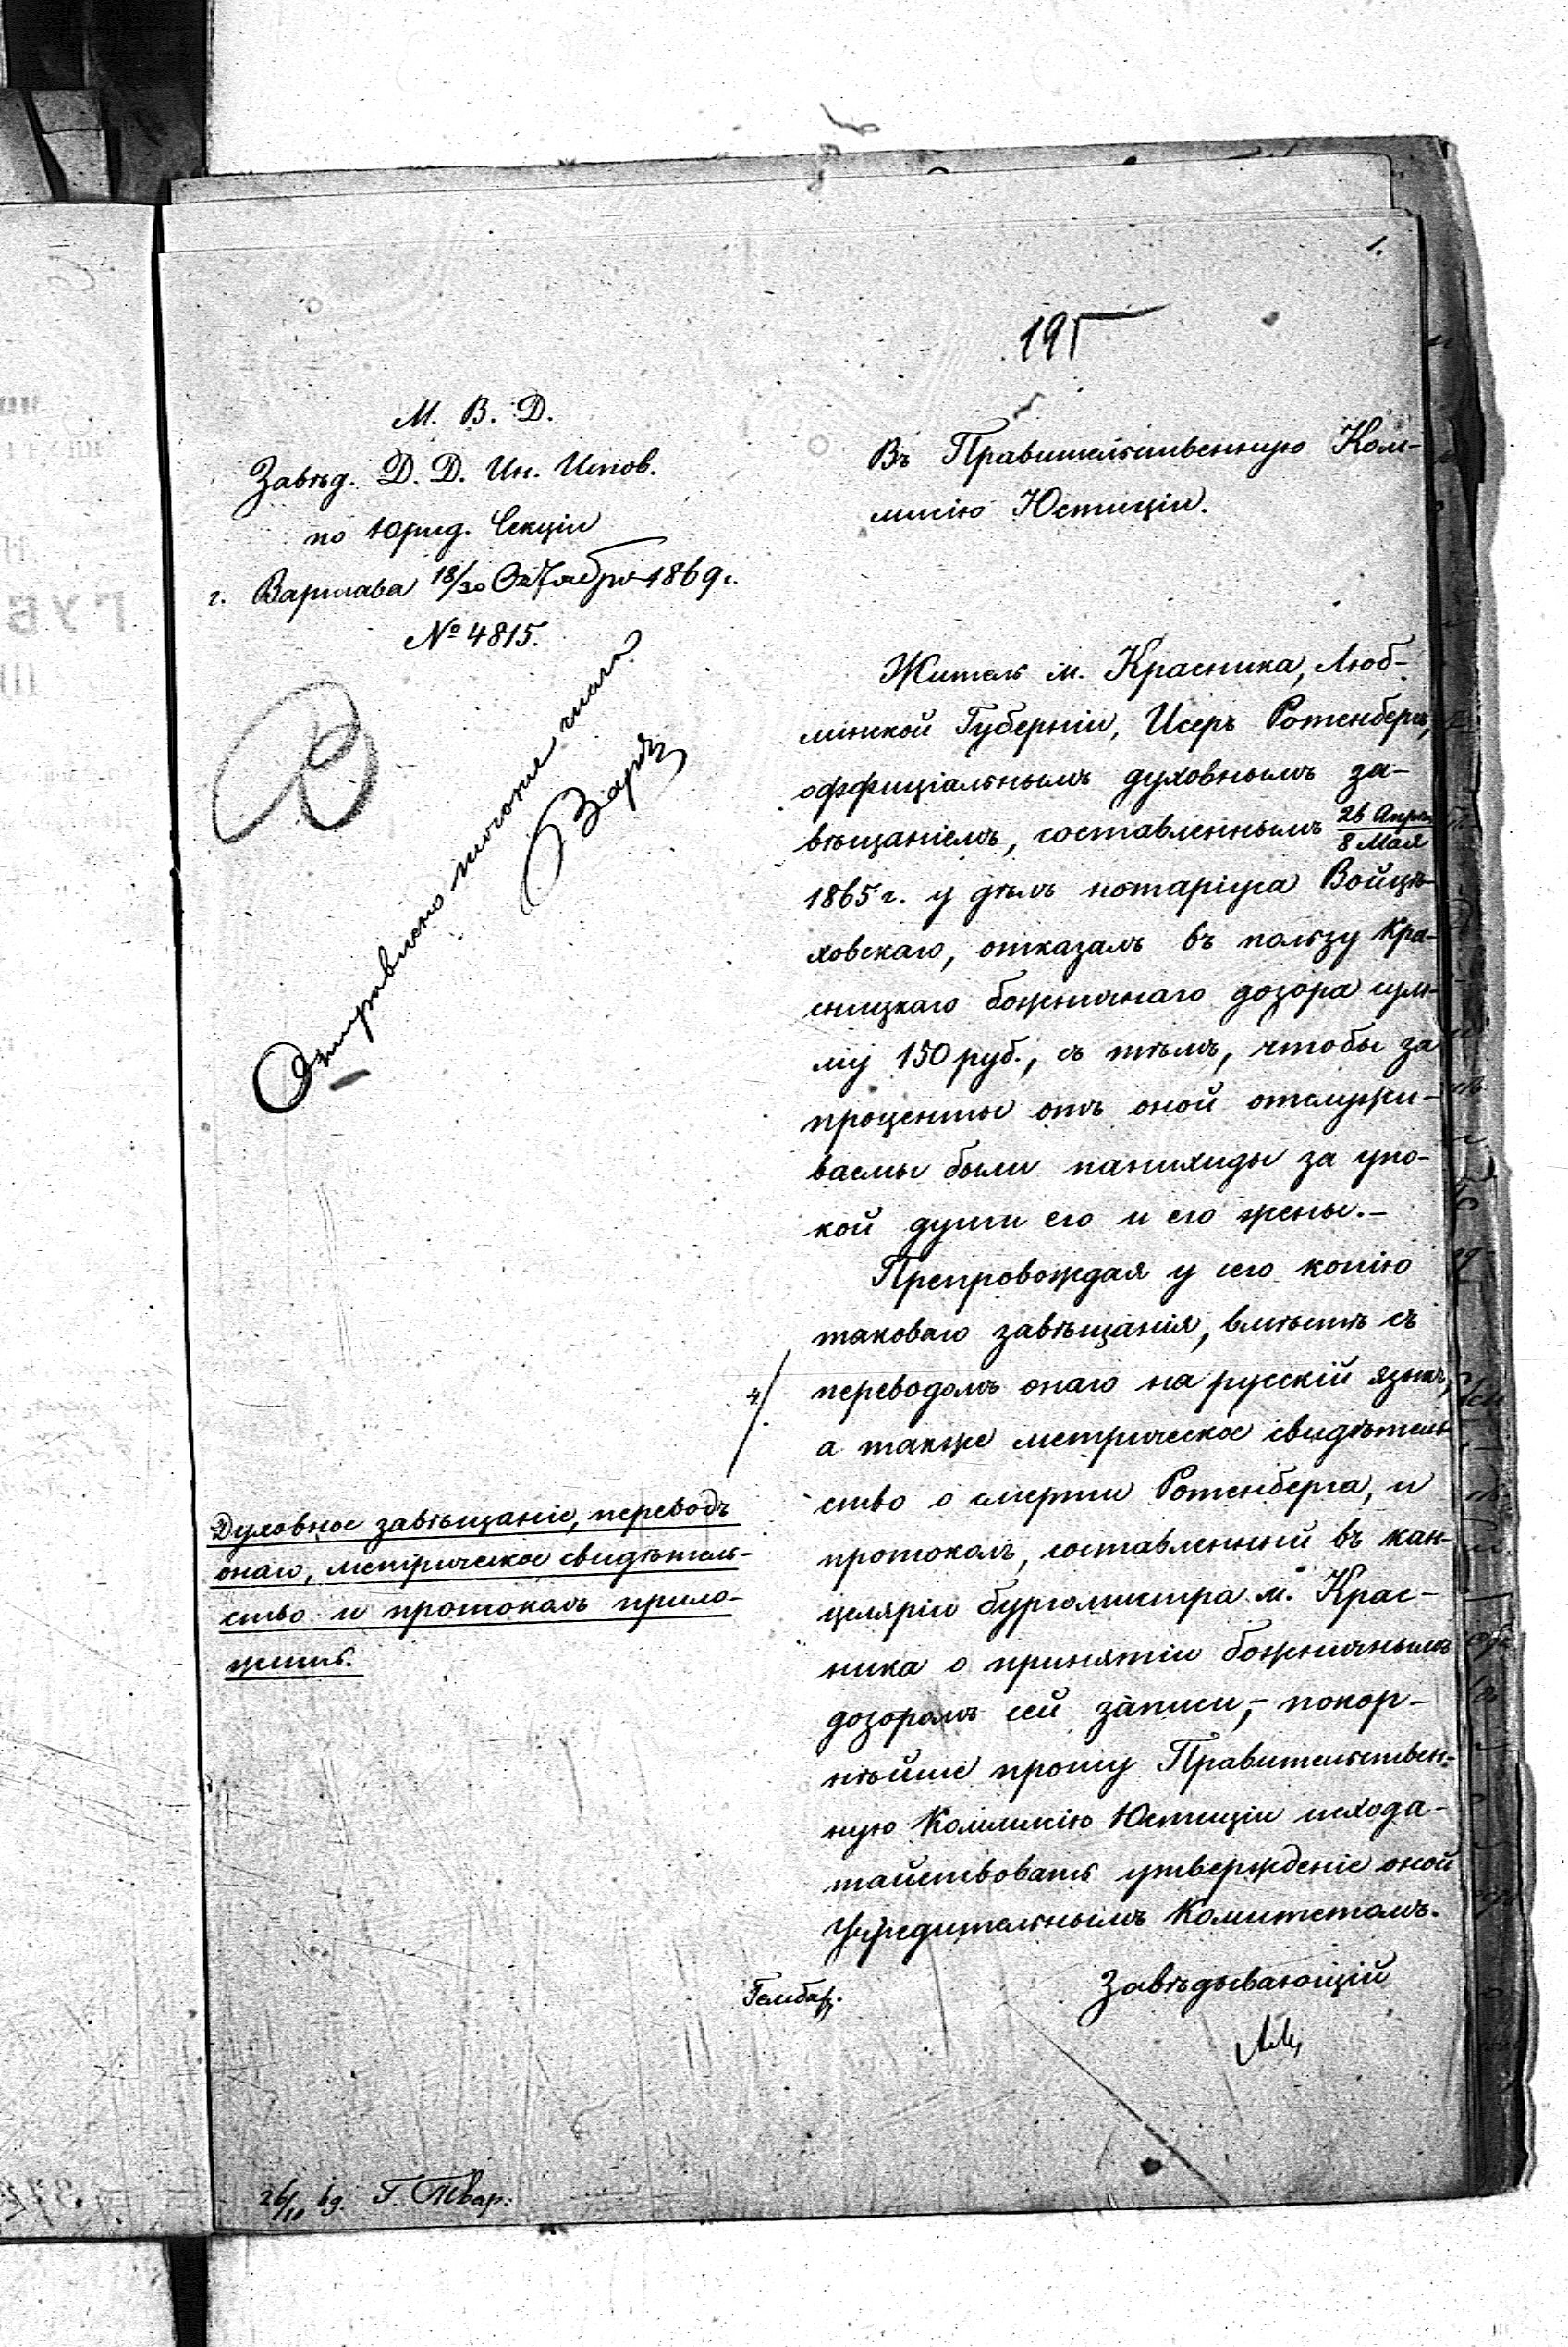 1.
195
М. В. Д.
Завѣд. Д. Д. Ин. Испов.
по Юрид. Секціи
г. Варшава 18/30 Октября 1869 г.
№ 4815.
Въ Правительственную Ком-
мисію Юстиціи.
Житель м. Красника, Люб-
линской Губерніи, Исеръ Ротенбергъ,
оффиціальнымъ духовнымъ за-
вѣщаніемъ, составленнымъ 26 Апрѣля/8 Мая
1865 г. у дѣлъ нотаріуса Войцѣ-
ховскаго, отказалъ въ пользу Кра-
сницкаго божничнаго дозора сум-
му 150 руб., съ тѣмъ, чтобы за
проценты отъ оной отслужи-
ваемы были панихиды за упо-
кой души его и его жены.-
Препровождая у сего копію
таковаго завѣщанія, вмѣстѣ съ
4/. переводомъ онаго на русскій языкъ,
а также метрическое свидѣтель-
ство о смерти Ротенберга, и
протоколъ, составленный въ кан-
целяріи бургомистра м. Крас-
ника о принятіи божничнымъ
дозоромъ сей записи,- покор-
нѣйше прошу Правительствен-
ную Коммисію Юстиціи исхода-
тайствовать утвержденіе оной
Учредительнымъ Комитетомъ.
Завѣдывающій
Отправлено того же числа
Духовное завѣщаніе, переводъ
онаго, метрическое свидѣтель-
ство и протоколъ прило-
жить.